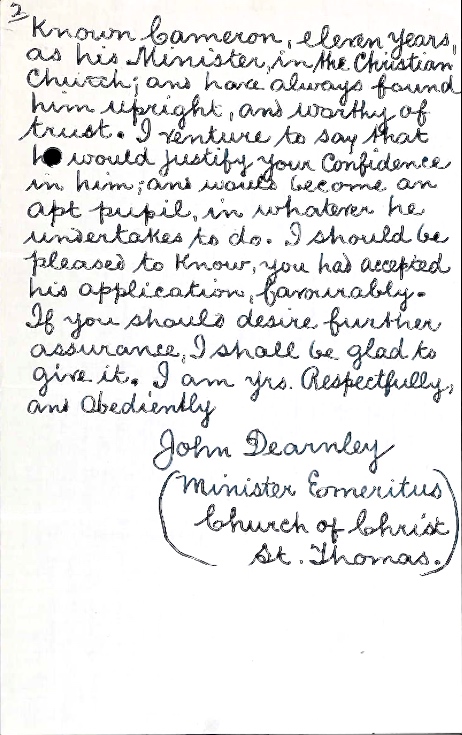 2
Known Cameron, eleven years,
as his Minister, in the Christian
Church; and have always found
him upright, and worthy of
trust. I venture to say that
he would justify your confidence
in him; and would become an
apt pupil, in whatever he
undertakes to do. I should be
pleased to know, you had accepted
his application, favourably.
If you should desire further
assurance, I shall be glad to
give it. I am yrs. Respectfully,
and Obediently
John Dearnley
(Minister Emeritus
Church of Christ
St. Thomas.)